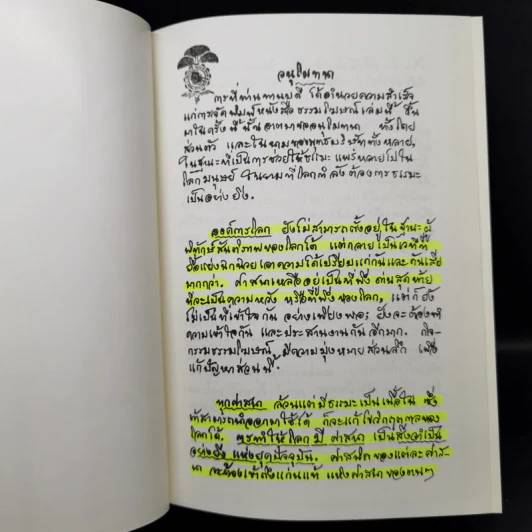 อนุโมทนา
การที่ท่านทานบดี ได้อำนวยความสำเร็จ
แก่การจัดพิมพ์หนังสือธรรมโฆษณ์เล่มนี้ ขึ้น
มาในครั้งนี้นั้น อาตมาขออนุโมทนา ทั้งโดย
ส่วนตัว และในนามของพุทธบริษัททั้งหลาย,
ในฐานะที่เป็นการช่วยให้ธรรมะ แพร่หลายไปใน
โลกมนุษย์ ในยามที่โลกกำลังต้องการธรรมะ
เป็นอย่างยิ่ง.
องค์การโลก ยังไม่สามารถตั้งอยู่ในฐานะผู้
พิทักษ์สันติภาพของโลกได้ แต่กลายเป็นเวทีที่
ยื้อแย่ง เอาความได้เปรียบแก่กันและกันเสีย
มากกว่า. ศาสนาเหลืออยู่เป็นที่พึ่ง ด่านสุดท้าย
ที่จะเป็นความหวัง หรือที่พึ่งของโลก, แต่ก็ยัง
ไม่เป็นที่เข้าใจกัน อย่างเพียงพอ; ยังจะต้องทำ
ความเข้าใจกัน และประสานงานกันอีกมาก. กิจ-
กรรมธรรมโฆษณ์ มีความมุ่งหมายส่วนลึก เพื่อ
แก้ปัญหาส่วนนี้.
ทุกศาสนา ล้วนแต่มีธรรมะเป็นเนื้อใน ซึ่ง
ถ้าสามารถนำออกมาใช้ได้ ก็จะแก้ไขวิกฤตกาลของ
โลกได้. การทำให้โลกมีศาสนา เป็นสิ่งจำเป็น
อย่างยิ่ง แห่งยุคปัจจุบัน. ศาสนิกของแต่ละศาส-
นา จะต้องเข้าถึงแก่นแท้ แห่งศาสนาของตนๆ